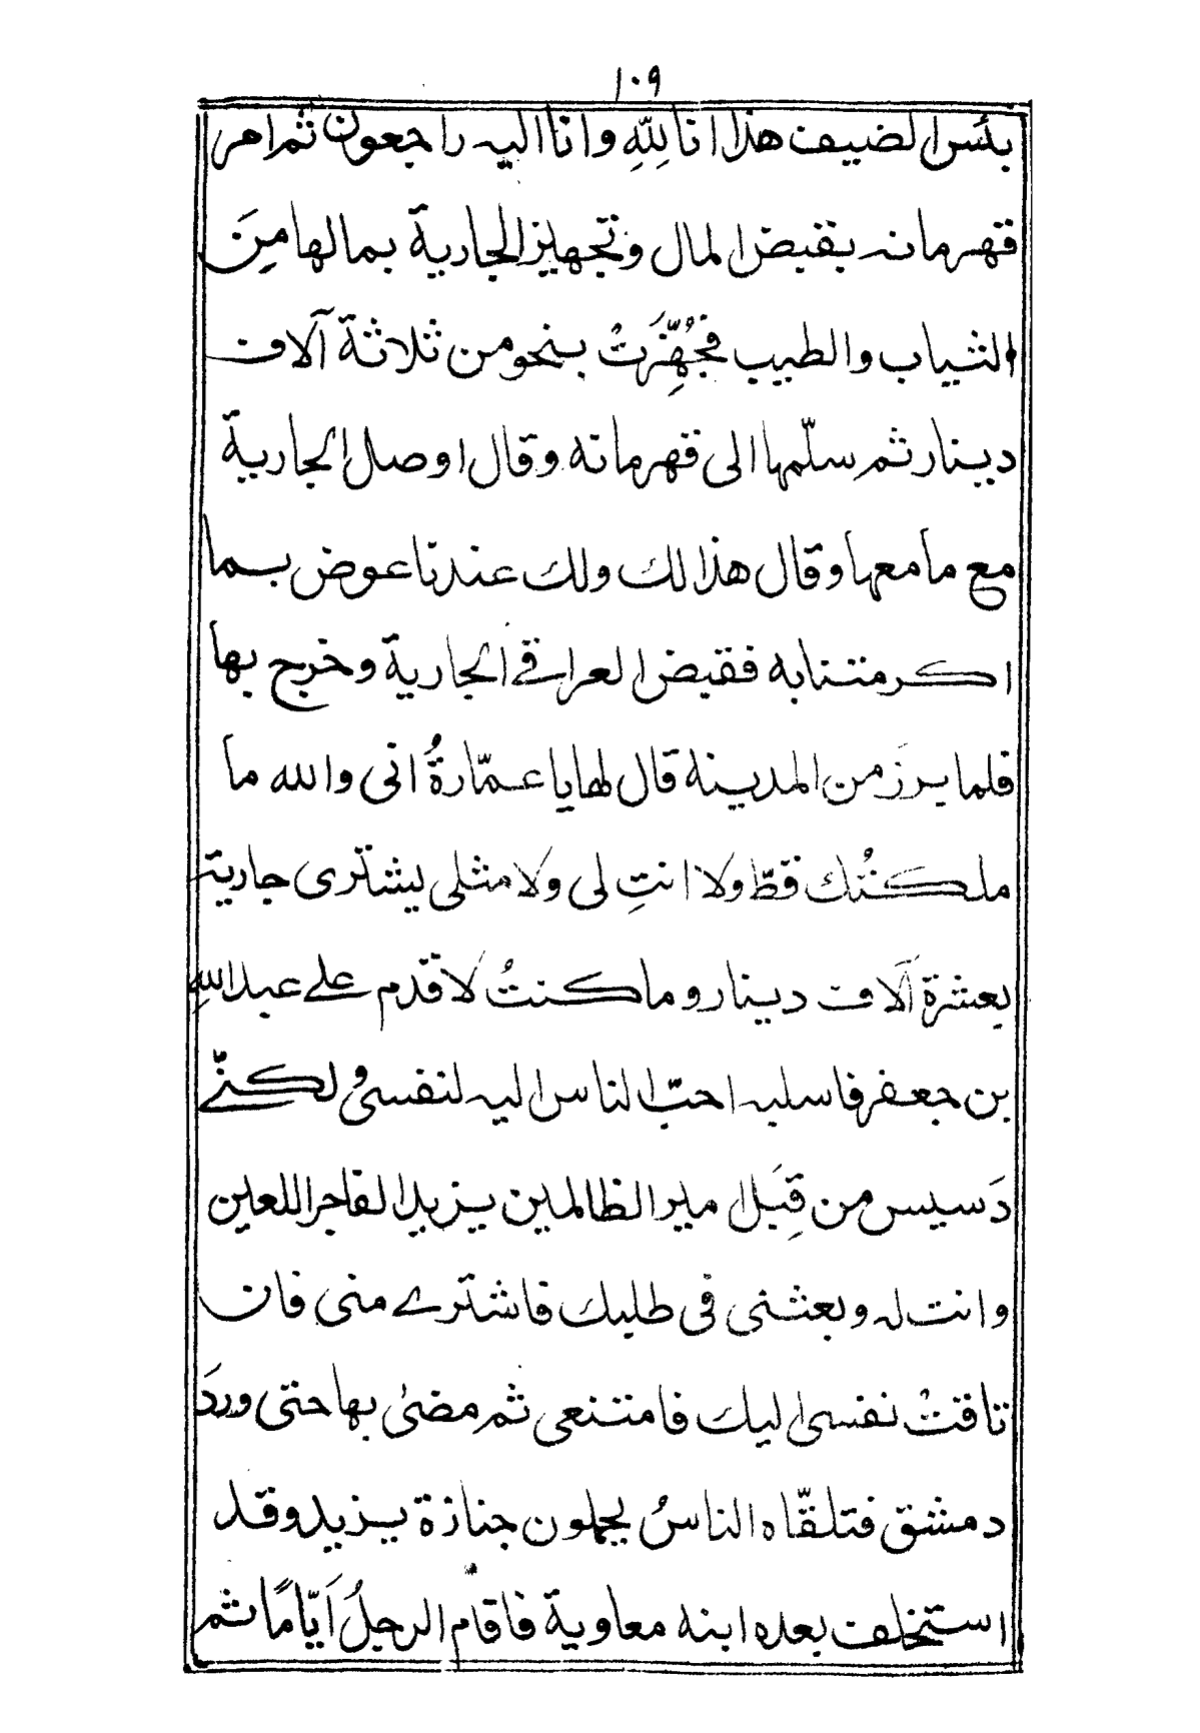 ١٠٩
بئس الضيف هذا انا لِلّٰهِ وانا اليه راجعون ثم امر
قهرمانه بقبض المال وتجهيز الجارية بمالها مِنَ
الثياب والطيب فجُهِّزَتْ بنحو من ثلاثة آلاف
دينار ثم سلّمها الى قهرمانه وقال اوصل الجارية
مع ما معها وقال هذا لك ولك عندنا عوض بما
اكرمتنا به فقبض العراقي الجارية وخرج بها
فلما برزَ من المدينة قال لها يا عمّارةُ انى والله ما
ملكتُك قطّ ولا انتِ لى ولا مثلى يشترى جارية
بعشرة آلاف دينار وما كنتُ لاقدم على عبد اللهِ
بن جعفر فاسلبه احبّ الناس اليه لنفسى ولكنّے
دَسيس من قِبَل امير الظالمين يزيد الفاجر اللعين
وانت له وبعثنى فى طلبك فاشترے منى فان
تاقتْ نفسى اليك فامتنعى ثم مضىٰ بها حتى وردَ
دمشق فتلقّاه الناسُ يحملون جنازة يزيد وقد
استخلف بعده ابنه معاوية فاقام الرجلُ اَيّامًا ثم